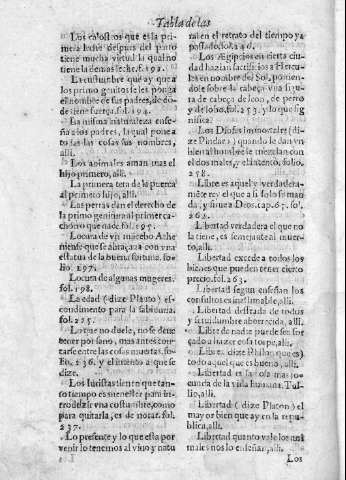 Tabla de las
Los calostros que es la primera leche despues del parto
tiene mucha virtud la qual no
tiene la demas leche. f. 192.
La costumbre que ay que a
los primogenitos se les ponga
el nombre de sus padres, de donde
tiene fuerça. fol. 194.
La misma naturaleza enseña
a los padres, la qual pone a
todas las cosas sus nombres,
alli.
Los animales aman mas el
hijo primero, alli.
La primera teta de la puerca
al primero hijo, alli.
Las perras dan el derecho de
la primogenitura al primer cachorro
que nace. fol. 195.
Locura de vn mácebo Atheniense
que se abraçaua con vna
estatua de la buena fortuna. folio
197.
Locura de algunas mugeres.
fol. 198.
La edad (dize Plauto) es
condimento para la sabiduria.
fol. 225.
Lo que no duele, no se deue
tener por sano, mas antes contarse
entre las cosas muertas. folio
236. y el intento a que se
dize.
Los juristas tiene que tanto
tiempo es menester para introduzir
vna costumbre, como
para quitarla, es de notar. fol.
237.
Lo presente y lo que esta por
venir lo tenemos al viuo y natural
en el retrato del tiempo ya
passado.
Los Ægipcios en cierta ciudad
hazian sacrificios a Hercules
en nombre del Sol, poniendole
sobre la cabeça vna figura
de cabeça de leon, de perro
y de lobo, fol. 253. y lo que significa.
Los Dioses immortales (dize
Pindaro) quando le dan vn
bien al hombre le mezclan con
el dos males, y el intento, folio.
258.
Libre es aquel y verdaderamente
rey el que a si solo se manda,
y no a Dioses. cap. 65. fol.
262.
Libertad verdadera el que no
la tiene, es semejante al muerto,
alli.
Libertad excede a todos los
bienes que pueden tener cierto
precio. fol. 263.
Libertad segun enseñan los
consultos es inestimable, alli.
Libertad desseada de todos
y seruidumbre aborrecida, alli.
Libre de nadie puede ser forçado
a hazer cosa torpe, alli.
Libre (dize Philon) que es
todo aquel que es bueno, alli.
Libertad es la cosa mas jocunda
de la vida humana. Tullio,
alli.
Libertad (dize Platon) el
mayor bien que ay en la republica,
alli.
Libertad quanto vale los animales
nos lo enseñan, alli.
Los